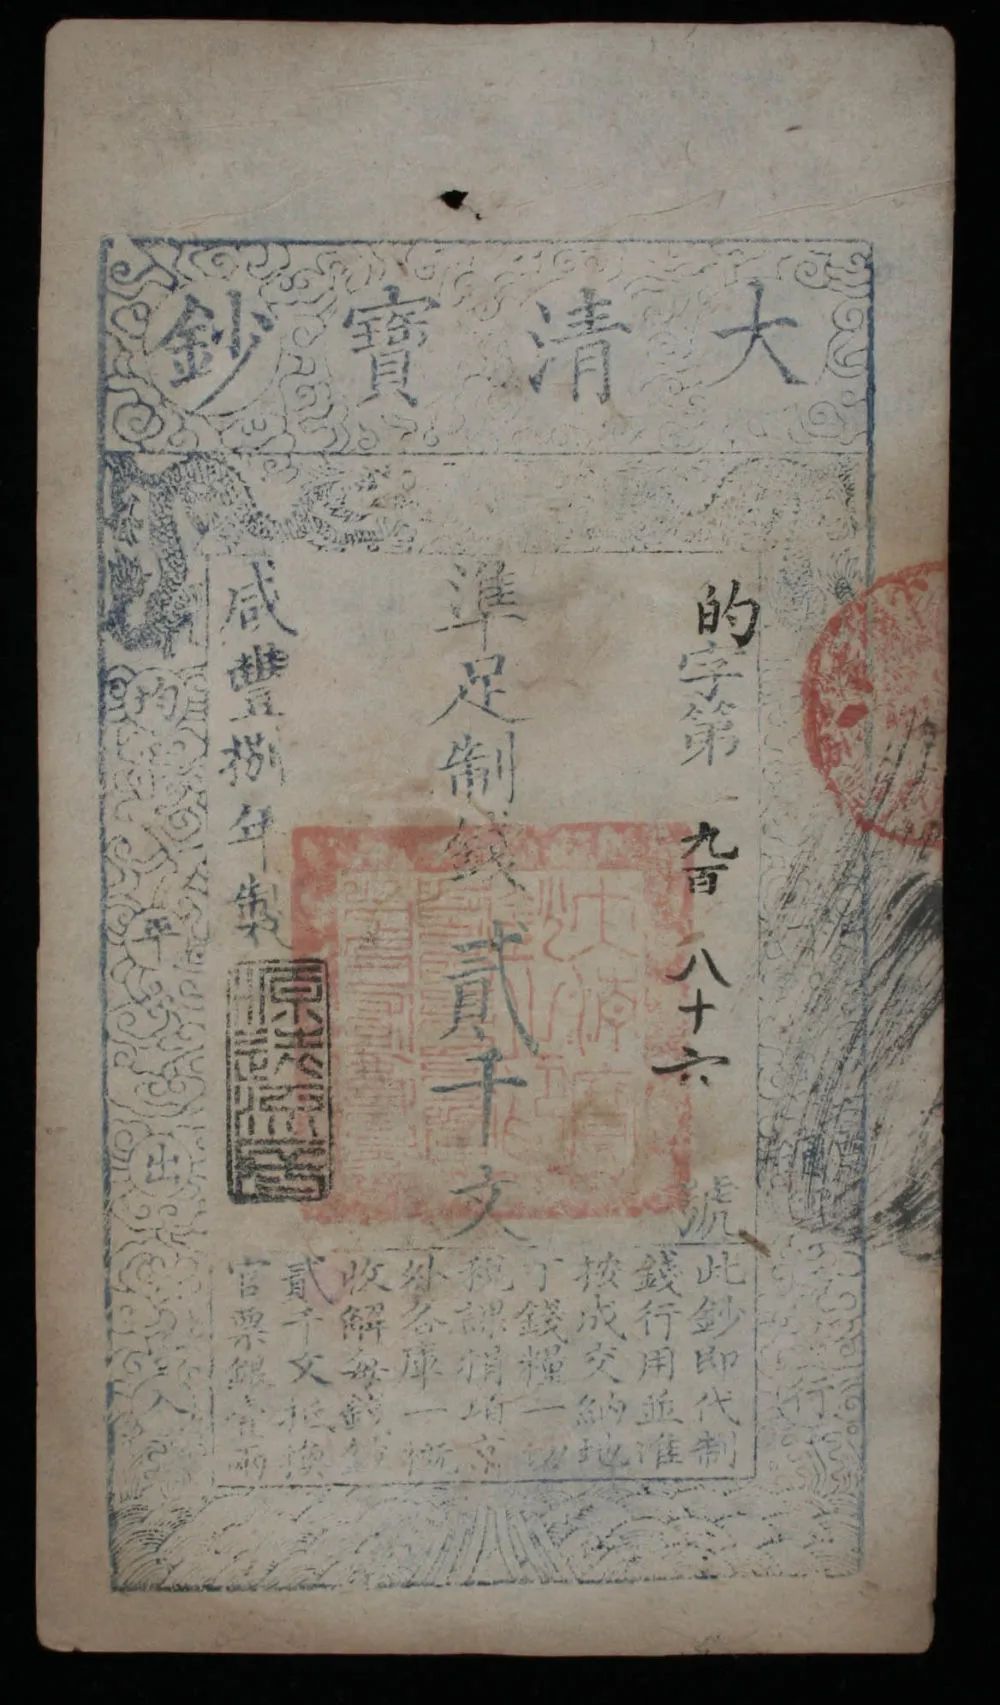 大清寶鈔
的字第九百八十六號
準足制錢貳千文
咸豐捌年製
行
均平出入
此鈔即代制
錢行用並准
按成交納地
丁錢糧一切
稅課捐項京
外各庫一概
收解每錢鈔
貳千文抵換
官票銀壹兩